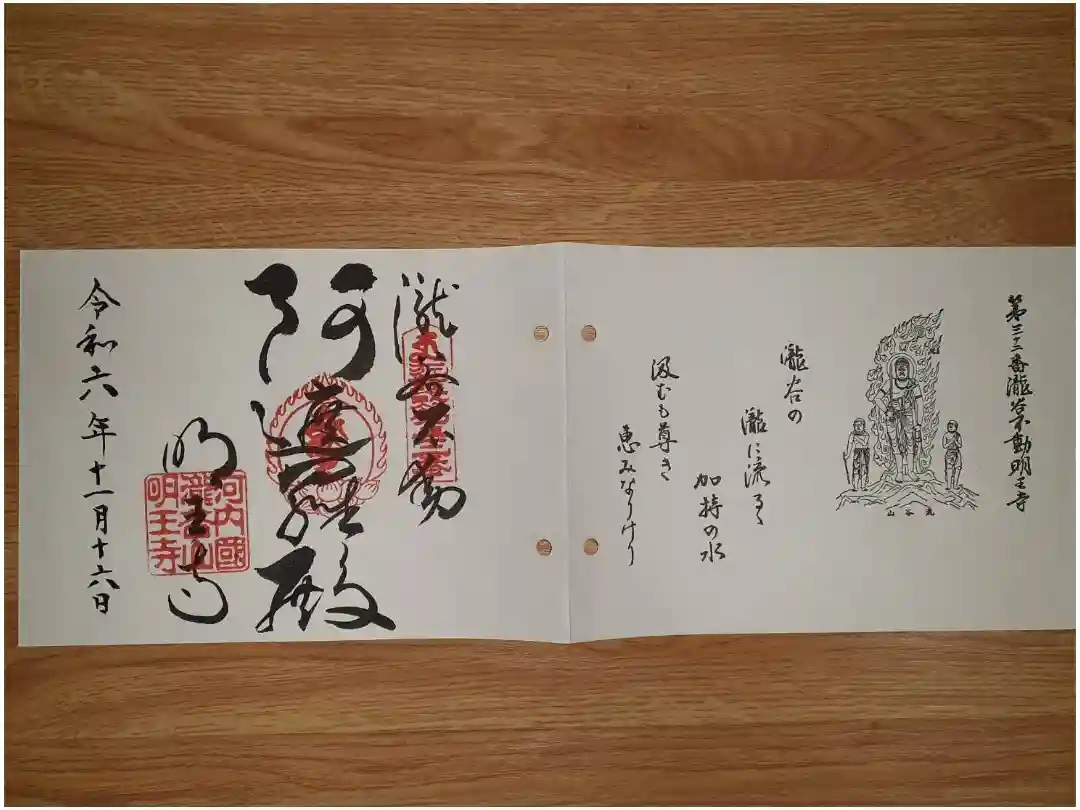 第三十二番瀧谷不動明王寺
瀧谷の
瀧に流るゝ
加持の水
汲むも尊き
恵みなりけり
瀧谷不動
阿遮羅殿
明王寺
河内國
瀧谷山
明王寺
令和六年十一月十六日